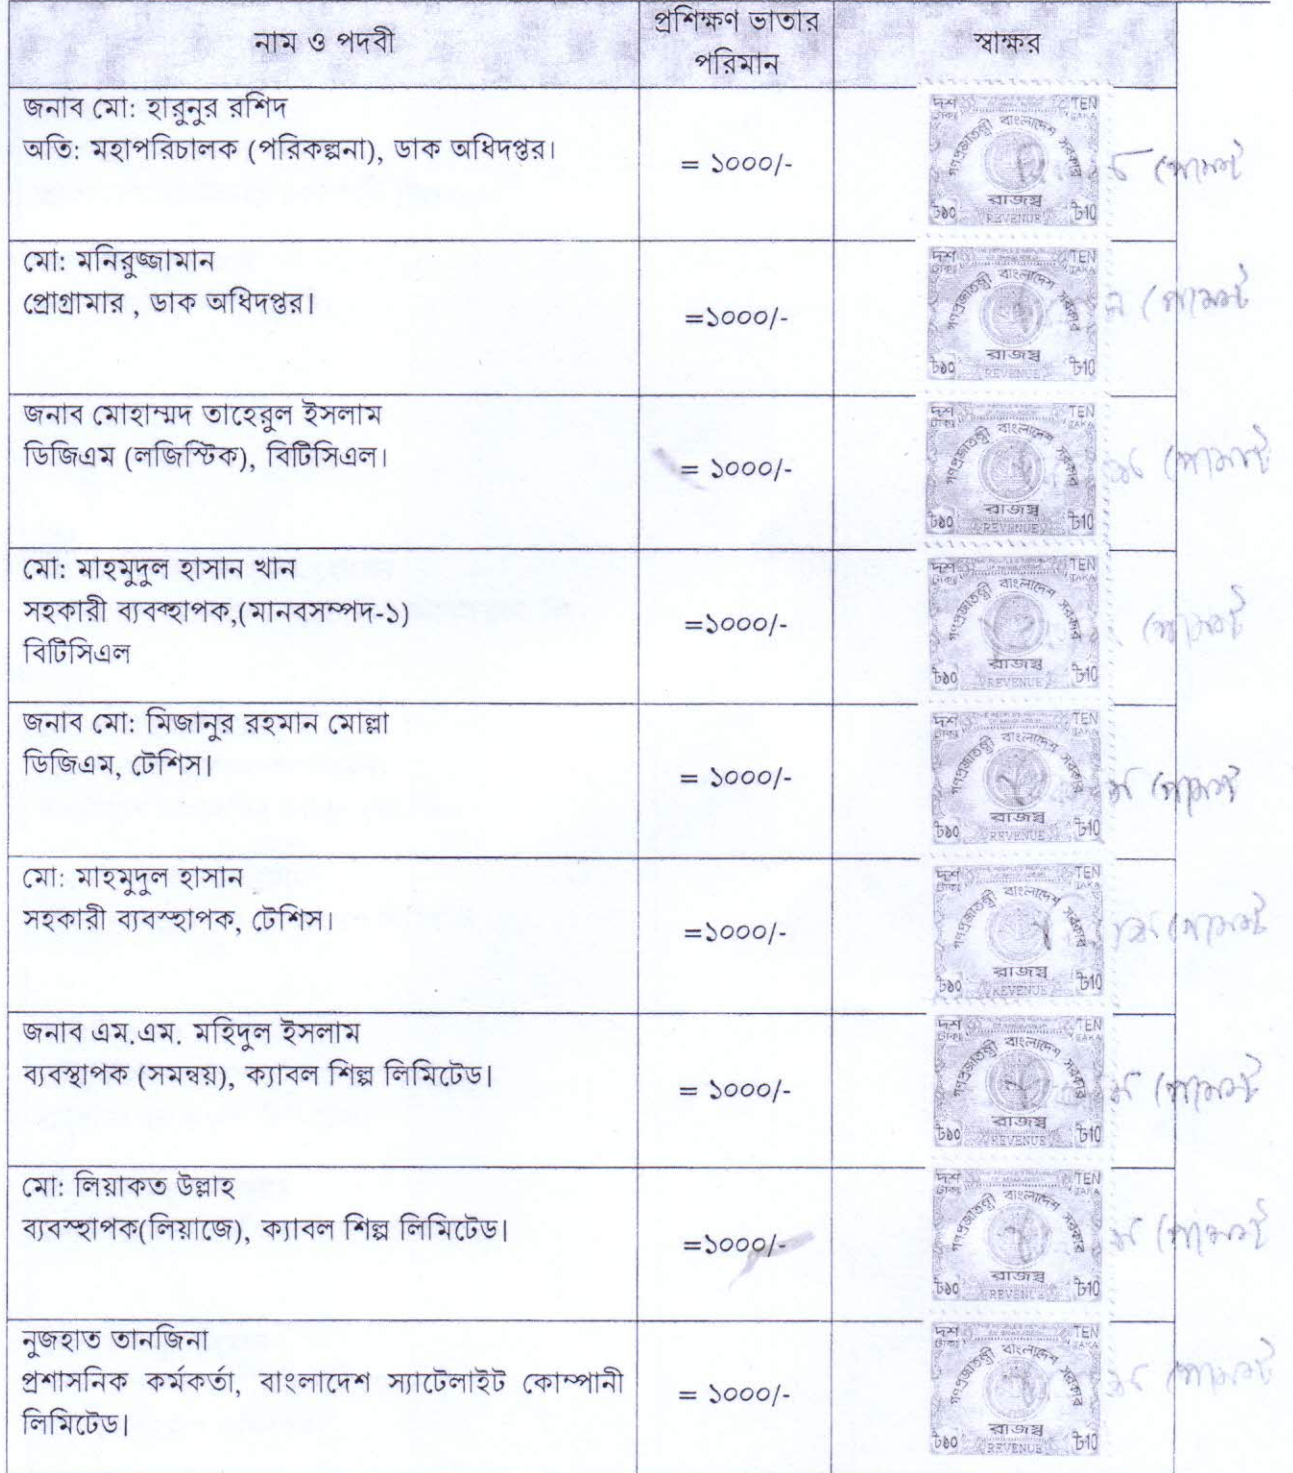 নাম ও পদবী
প্রশিক্ষণ ভাতার
পরিমান
স্বাক্ষর
জনাব মো: হারুনুর রশিদ
অতি: মহাপরিচালক (পরিকল্পনা), ডাক অধিদপ্তর।
= ১০০০/-
দশ টাকা TEN TAKA
গণপ্রজাতন্ত্রী বাংলাদেশ সরকার
রাজস্ব
৳১০ REVENUE ৳10
মো: মনিরুজ্জামান
প্রোগ্রামার , ডাক অধিদপ্তর।
=১০০০/-
দশ টাকা TEN TAKA
গণপ্রজাতন্ত্রী বাংলাদেশ সরকার
রাজস্ব
৳১০ REVENUE ৳10
জনাব মোহাম্মদ তাহেরুল ইসলাম
ডিজিএম (লজিস্টিক), বিটিসিএল।
= ১০০০/-
দশ টাকা TEN TAKA
গণপ্রজাতন্ত্রী বাংলাদেশ সরকার
রাজস্ব
৳১০ REVENUE ৳10
মো: মাহমুদুল হাসান খান
সহকারী ব্যবস্হাপক,(মানবসম্পদ-১)
বিটিসিএল
=১০০০/-
দশ টাকা TEN TAKA
গণপ্রজাতন্ত্রী বাংলাদেশ সরকার
রাজস্ব
৳১০ REVENUE ৳10
জনাব মো: মিজানুর রহমান মোল্লা
ডিজিএম, টেশিস।
= ১০০০/-
দশ টাকা TEN TAKA
গণপ্রজাতন্ত্রী বাংলাদেশ সরকার
রাজস্ব
৳১০ REVENUE ৳10
মো: মাহমুদুল হাসান
সহকারী ব্যবস্হাপক, টেশিস।
=১০০০/-
দশ টাকা TEN TAKA
গণপ্রজাতন্ত্রী বাংলাদেশ সরকার
রাজস্ব
৳১০ REVENUE ৳10
জনাব এম.এম. মহিদুল ইসলাম
ব্যবস্থাপক (সমন্বয়), ক্যাবল শিল্প লিমিটেড।
= ১০০০/-
দশ টাকা TEN TAKA
গণপ্রজাতন্ত্রী বাংলাদেশ সরকার
রাজস্ব
৳১০ REVENUE ৳10
মো: লিয়াকত উল্লাহ
ব্যবস্হাপক(লিয়াজে), ক্যাবল শিল্প লিমিটেড।
=১০০০/-
দশ টাকা TEN TAKA
গণপ্রজাতন্ত্রী বাংলাদেশ সরকার
রাজস্ব
৳১০ REVENUE ৳10
নুজহাত তানজিনা
প্রশাসনিক কর্মকর্তা, বাংলাদেশ স্যাটেলাইট কোম্পানী
লিমিটেড।
= ১০০০/-
দশ টাকা TEN TAKA
গণপ্রজাতন্ত্রী বাংলাদেশ সরকার
রাজস্ব
৳১০ REVENUE ৳10